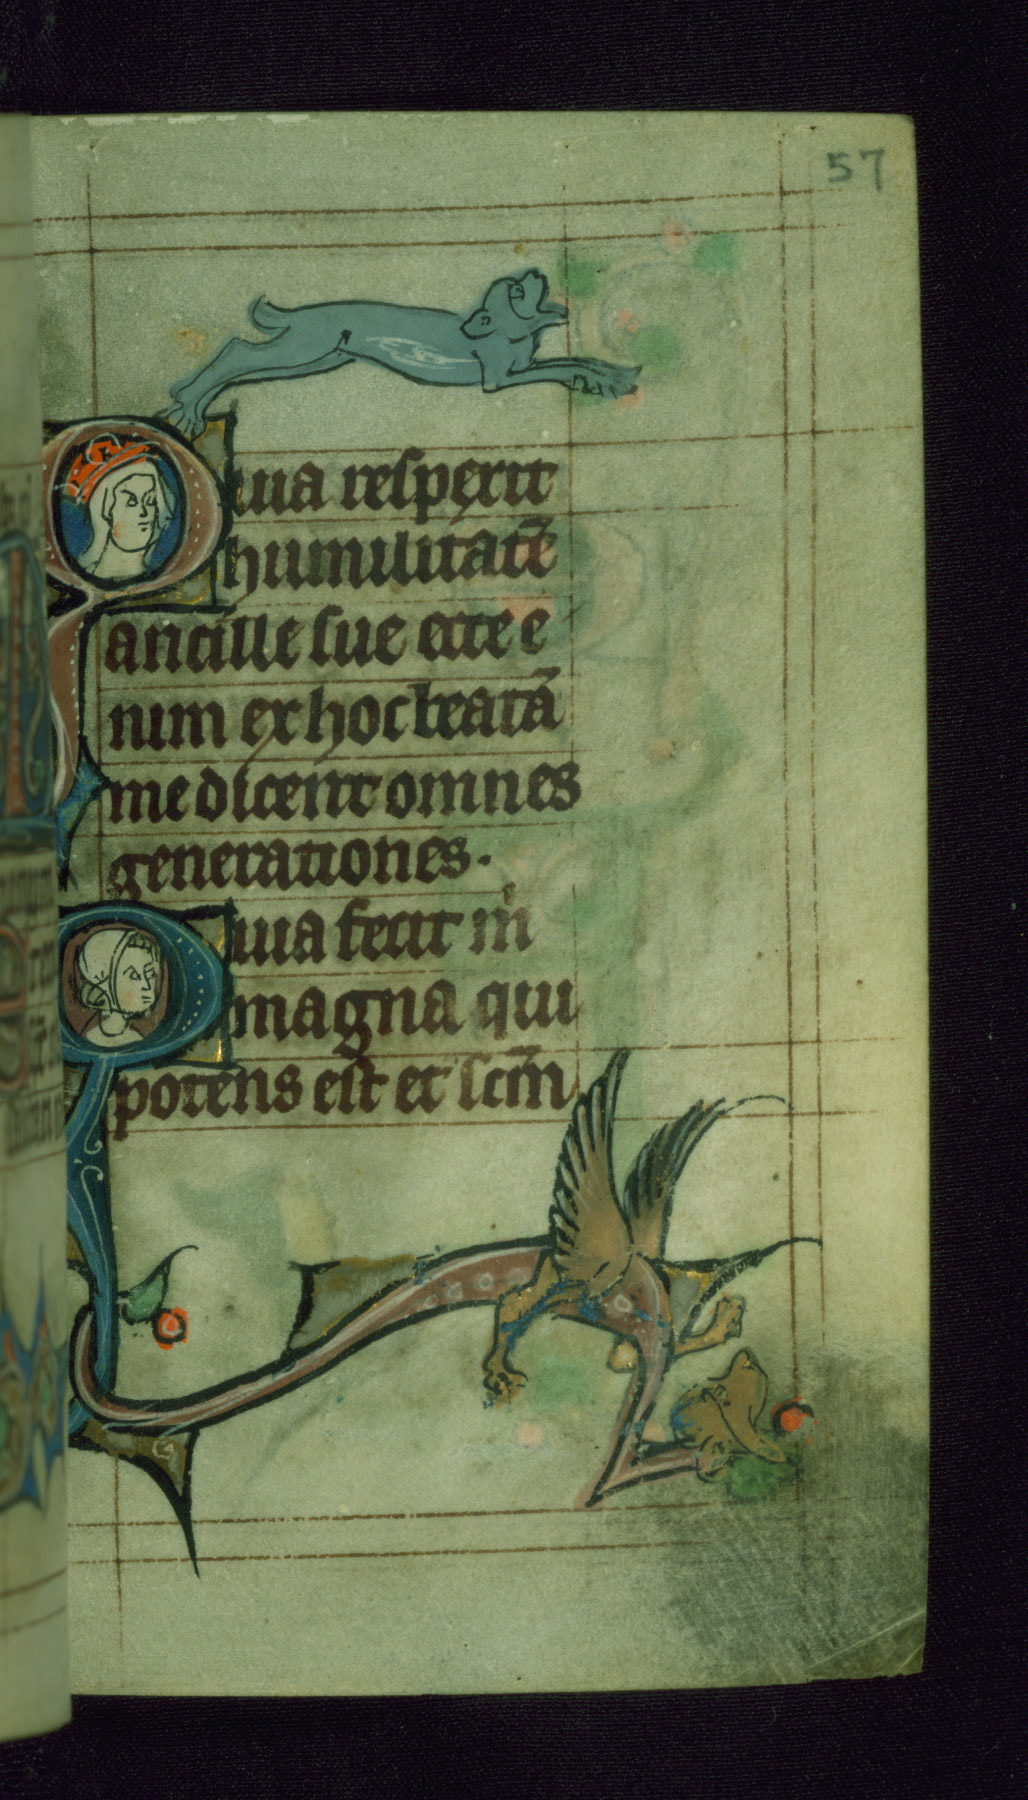 57
Quia respexit
humilitatē
ancille sue ecce e
nim ex hoc beatā
me dicent omnes
generationes.
Quia fecit mͥ
magna qui
potens est et scm̄